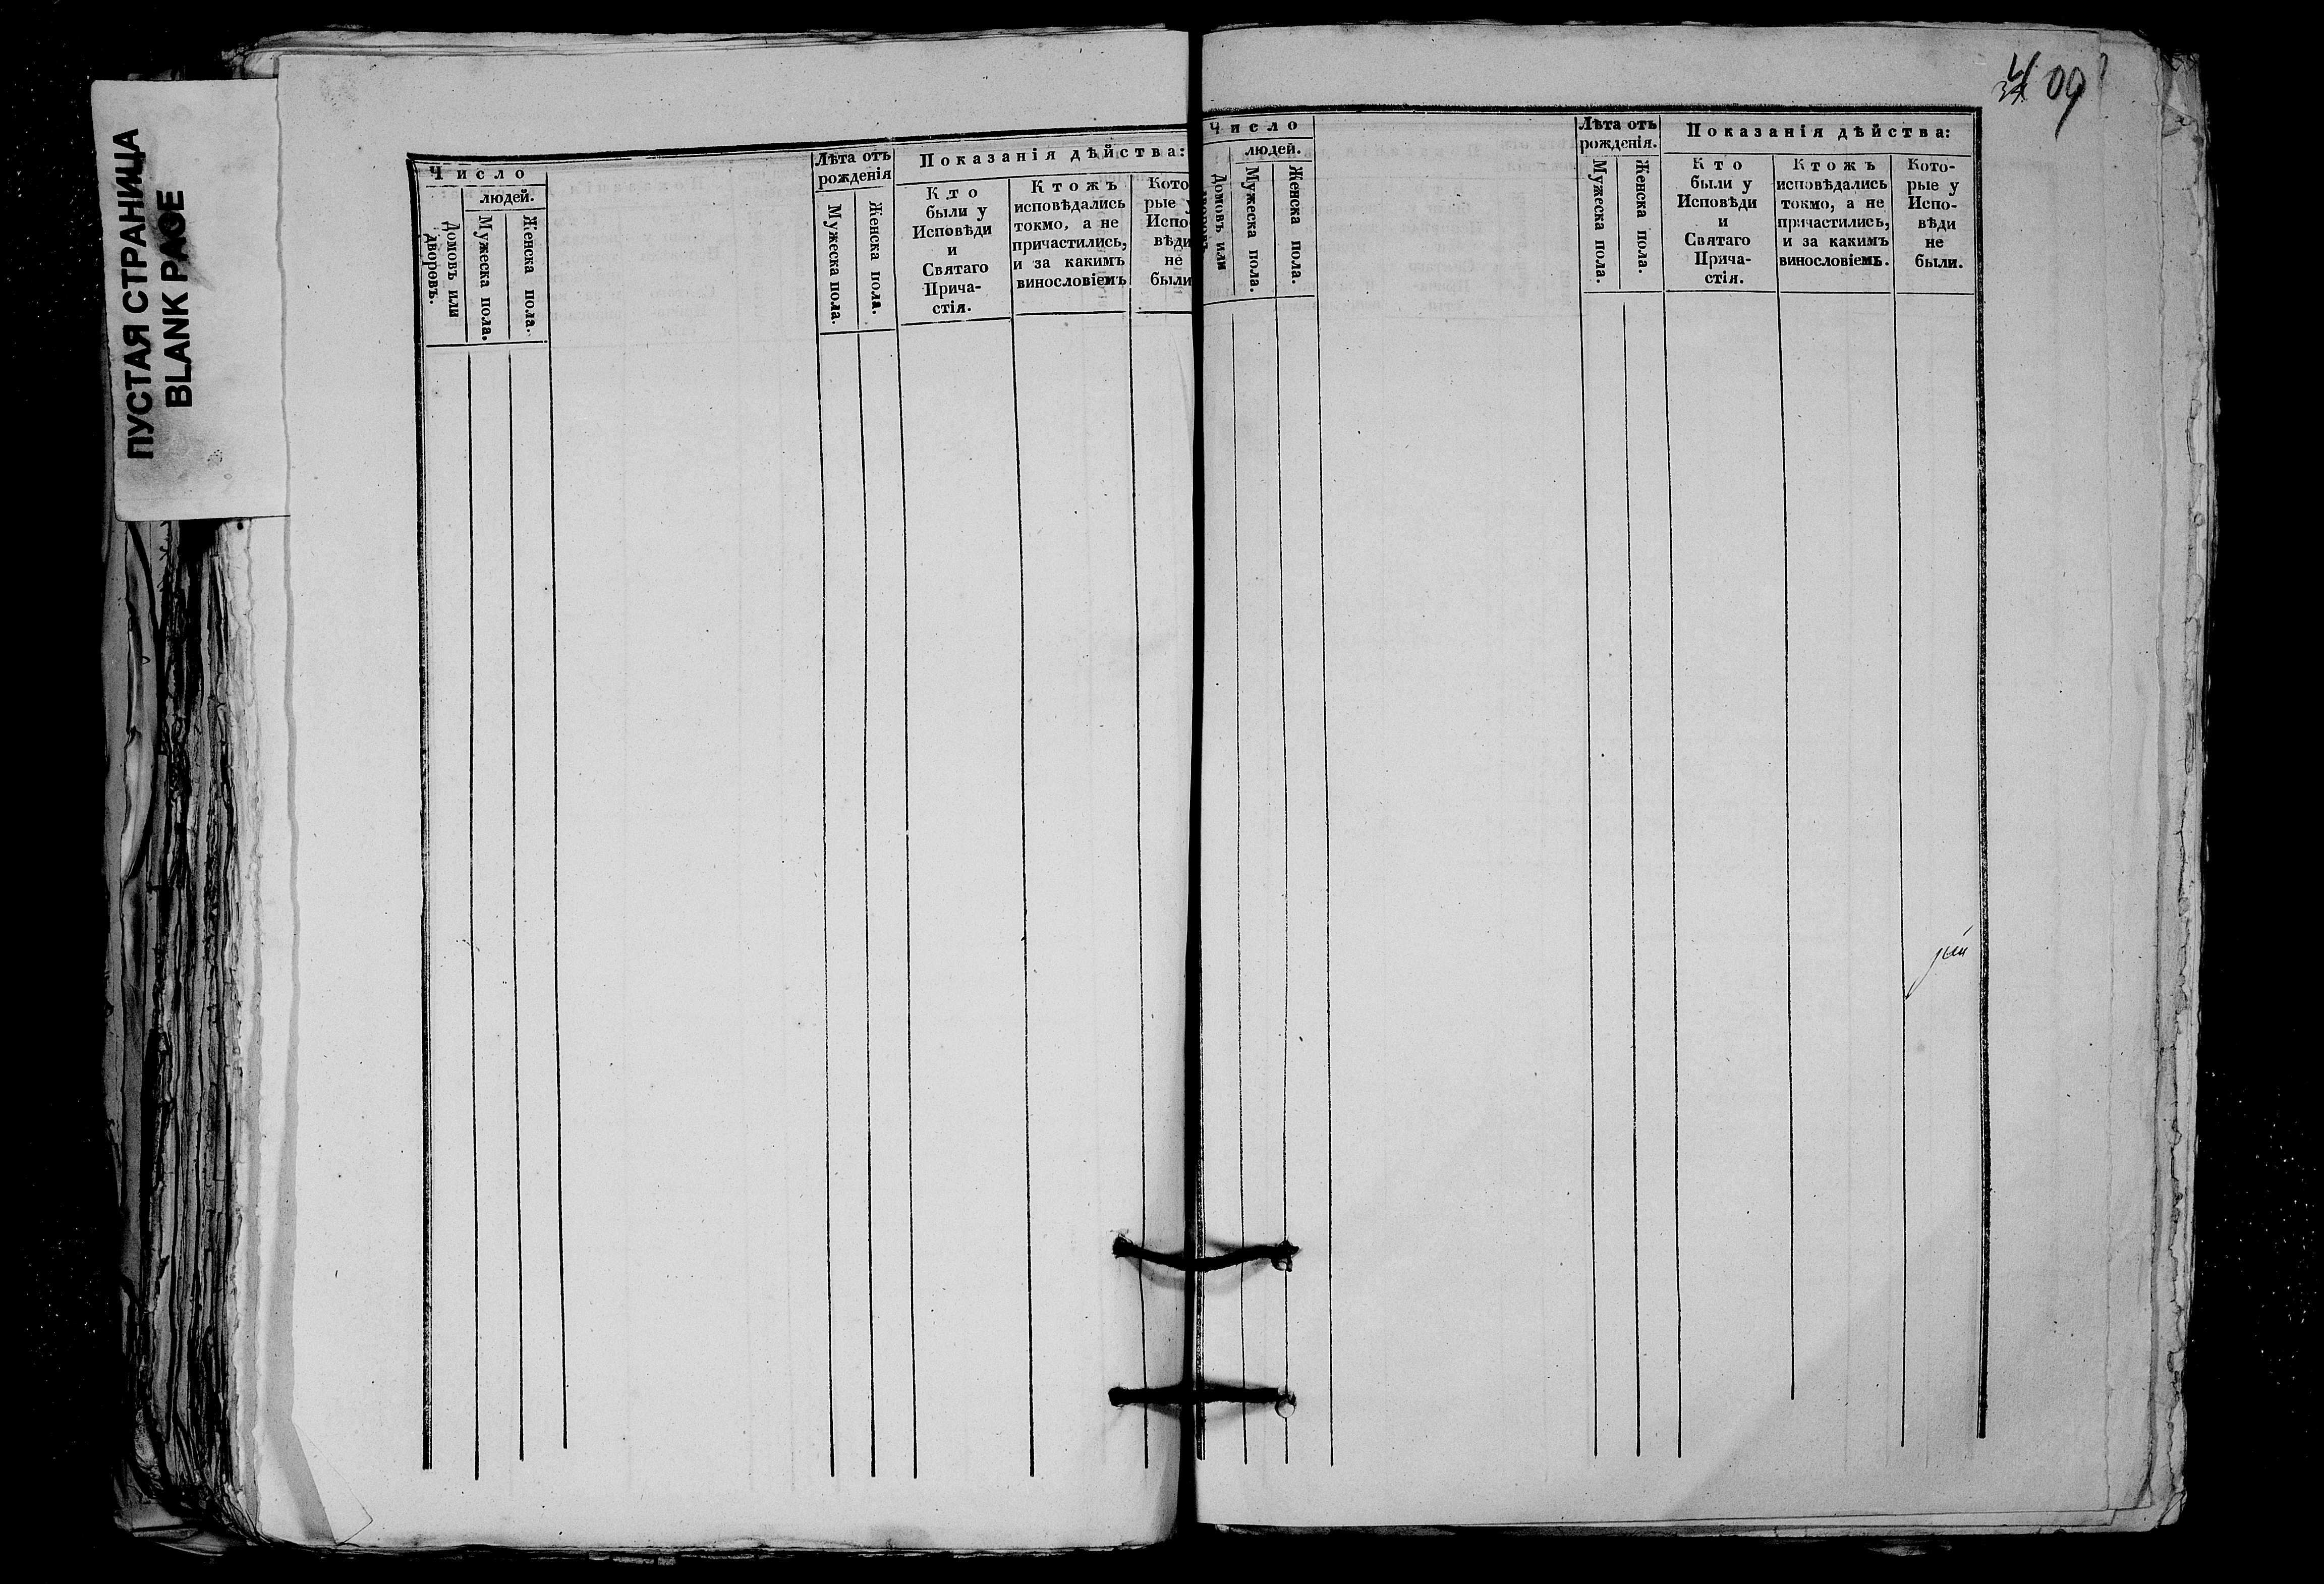 ПУСТАЯ СТРАНИЦА
BLANK PAGE
Число
людей.
Домовъ или
дворовъ.
Мужеска пола.
Женска пола.
Лѣта отъ
рожденія
Мужеска пола.
Женска пола.
Показанія дѣйства:
Кто
были у
Исповѣди
и
Святаго
Прича-
стія.
Ктожъ
исповѣдались
токмо, а не
причастились,
и за какимъ
винословіемъ
Кото
рые у
Испо
вѣди
не
были
09
Число
людей.
Домовъ или
дворовъ.
Мужеска пола.
Женска пола.
Лѣта отъ
рожденія.
Мужеска пола.
Женска пола.
Показанія дѣйства:
Кто
были у
Исповѣди
и
Святаго
Прича-
стія.
Ктожъ
исповѣдались
токмо, а не
причастились,
и за какимъ
винословіемъ.
Кото-
рые у
Испо-
вѣди
не
были.